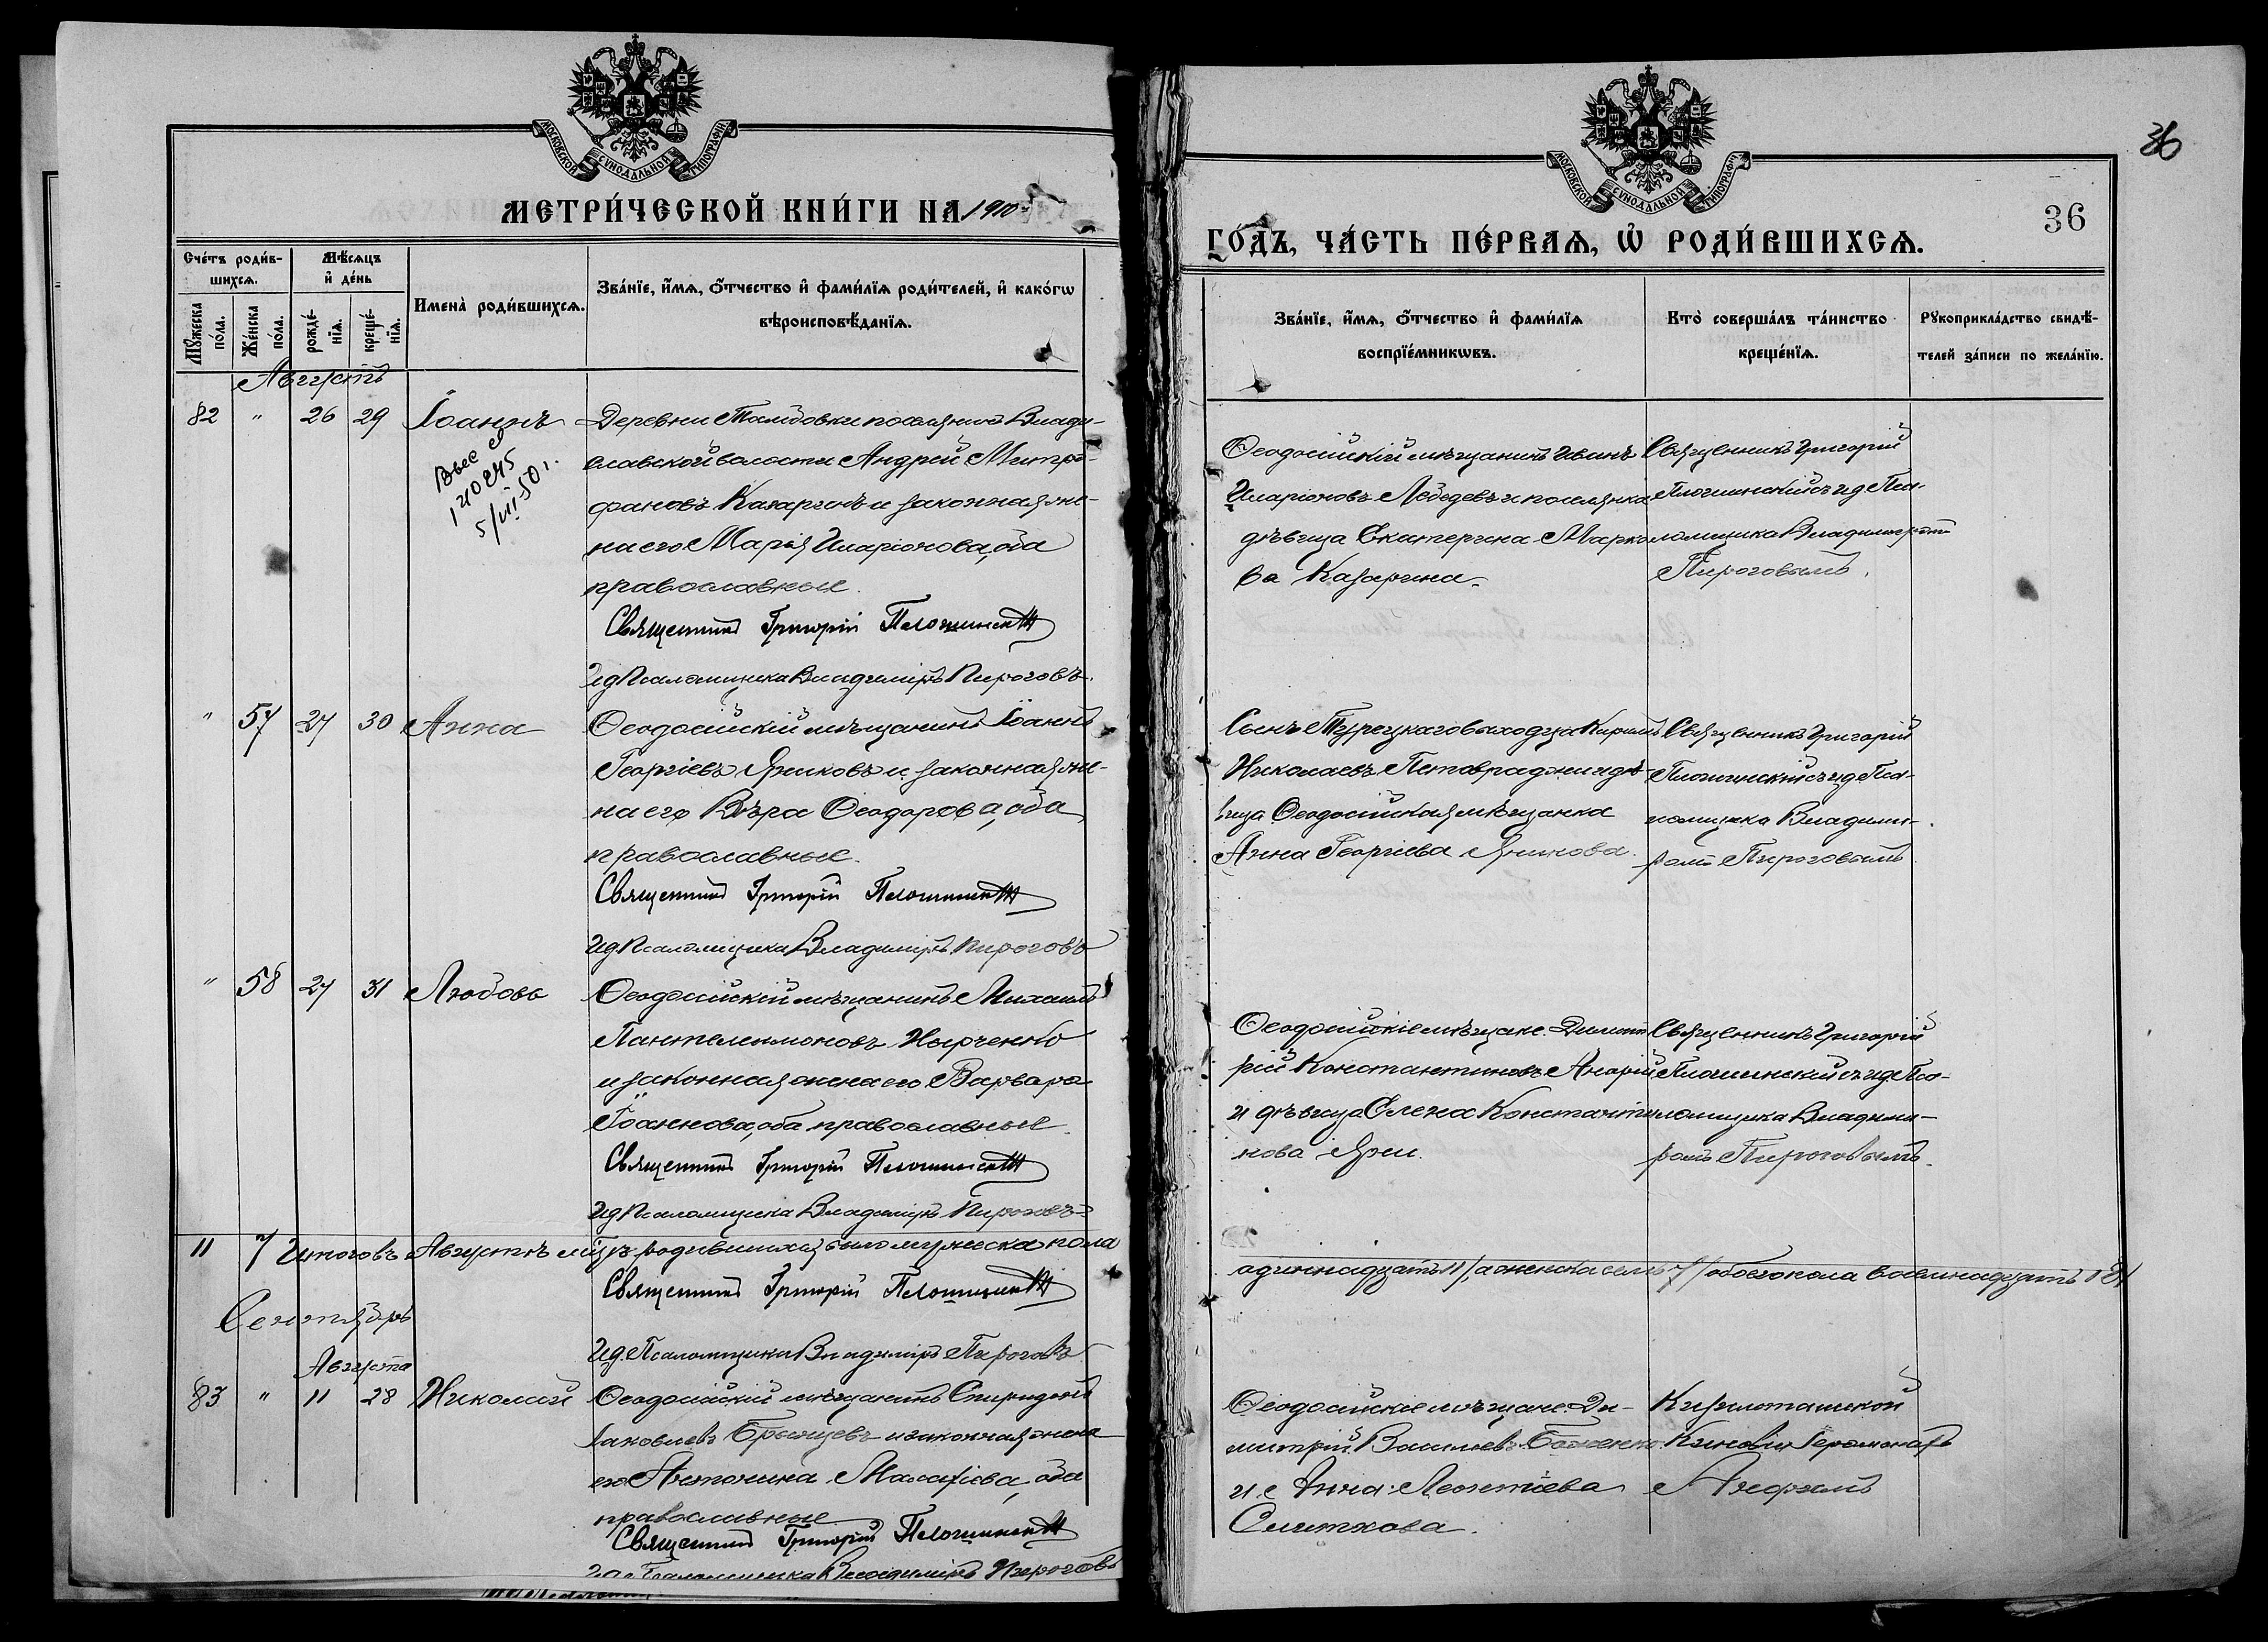 МОСКОВСКОЙ СѴНОДАЛЬНОЙ ТИПОГРАФІИ
МЕТРИ́ЧЕСКОЙ КНИ́ГИ НА 1910
Сче́тъ роди́в-
шихсѧ.
Мѣ́сѧцъ
и҆ де́нь
Мꙋ́жеска по́ла.
Же́нска по́ла.
рожде́-нїѧ.
креще́-нїѧ.
Имена̀ роди́вшихсѧ.
Зва́нїе, и҆́мѧ, ѻ҆́тчество и҆ фами́лїѧ роди́телей, и҆ како́гѡ
вѣроисповѣ́данїѧ.
Августъ
82 " 26 29 Іоаннъ
Деревни поселянинъ Влади-
славской волости Андрей Митро-
фановъ Казаринъ и законная же-
на его Марія Иларіонова, оба
православные.
140245
5/VII 50 г.
Священникъ Григорій
Ид Псаломщика Владиміръ Пироговъ.
" 57 27 30 Анна
Ѳеодосійскій мѣщанинъ Іоаннъ
Георгіевъ и законная же-
на его Вѣра Ѳеодорова, оба
православные.
Священникъ Григорій
Ид Псаломщика Владиміръ Пироговъ
" 58 27 31 Любовь
Ѳеодосійскій мѣщанинъ Михаилъ
Пантелеимоновъ
и законная жена его Варвара
Іоаннова, оба православные.
Священникъ Григорій
Ид Псаломщика Владиміръ Пироговъ
11 7 Итого въ Августѣ м-цѣ родившихся было мужеска пола
Священникъ Григорій
Ид. Псаломщика Владиміръ Пироговъ
Сентябрь
Августа
83 " 11 28 Николай
Ѳеодосійскій мѣщанинъ Спиридонъ
Іаковлевъ и законная жена
его Антонина оба
православные
Священникъ Григорій
Ид. Псаломщика Владиміръ Пироговъ
МОСКОВСКОЙ СѴНОДАЛЬНОЙ ТИПОГРАФІИ
36
36
ГО́ДЪ, ЧА́СТЬ ПЕ́РВАѦ, Ѽ РОДИ́ВШИХСѦ.
Зва́нїе, и҆́мѧ, ѻ҆́тчество и҆ фами́лїѧ
воспрїе́мникѡвъ.
Кто̀ соверша́лъ та́инство
креще́нїѧ.
Рꙋкоприкла́дство свидѣ́-
телей за́писи по жела́нїю.
Ѳеодосійскій мѣщанинъ Иванъ
Иларіоновъ Лебедевъ и поселянка
дѣвица Екатерина Марко
ва Казарина.
Священникъ Григорій
съ ид Пса-
ломщика Владиміромъ
Пироговымъ.
Сынъ Турецкаго выходца
Николаевъ и дѣ-
вица Ѳеодосійская мѣщанка
Анна Георгіева
Священникъ Григорій
съ ид Пса-
ломщика Владими-
ромъ Пироговымъ
Ѳеодосійскіе мѣщане Димит
рій Константиновъ
и дѣвица Елена Константи
нова
Священникъ Григорій
съ ид Пса-
ломщика Владими-
ромъ Пироговымъ.
одиннадцать 11/, а женска семь 7/ обоего пола восемнадцать 18/
Ѳеодосійскіе мѣщане: Ди-
митрій Васильевъ
и Анна Леонтіева
Кизилташской
Киновіи Іеромонахъ